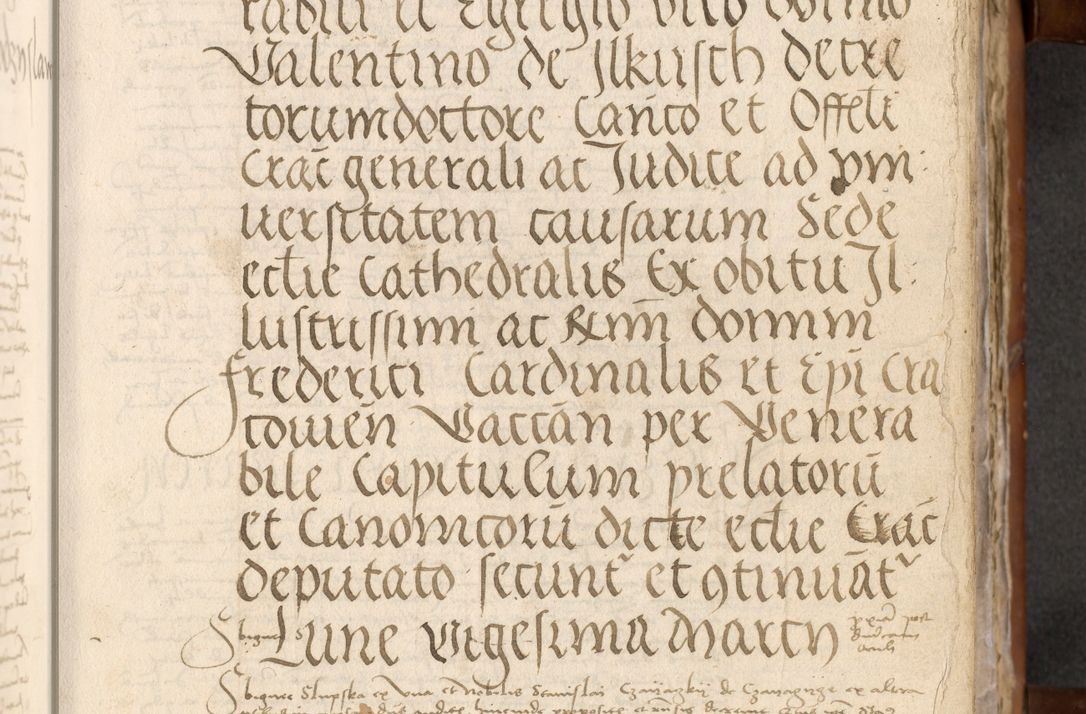 rabili et Egregio viro domino
Valentino de Ilkusch decre
torum doctore Canco et Offeli
Crac generali ac Iudice ad vni
uersitatem causarum Sede
ecclie Cathedralis Ex obitu Il
lustrissimi ac Rmi domini
Frederici Cardinalis et Epi Cra
couien Vaccan per Venera
bile Capitulum prelatoru
et Canonicoru dicte ecclie Crac
deputato secunt et 9tinuat
Lune vigesima Marcii
Sbignee Slupska ex vna et Nobilis Stanislai de ex altera